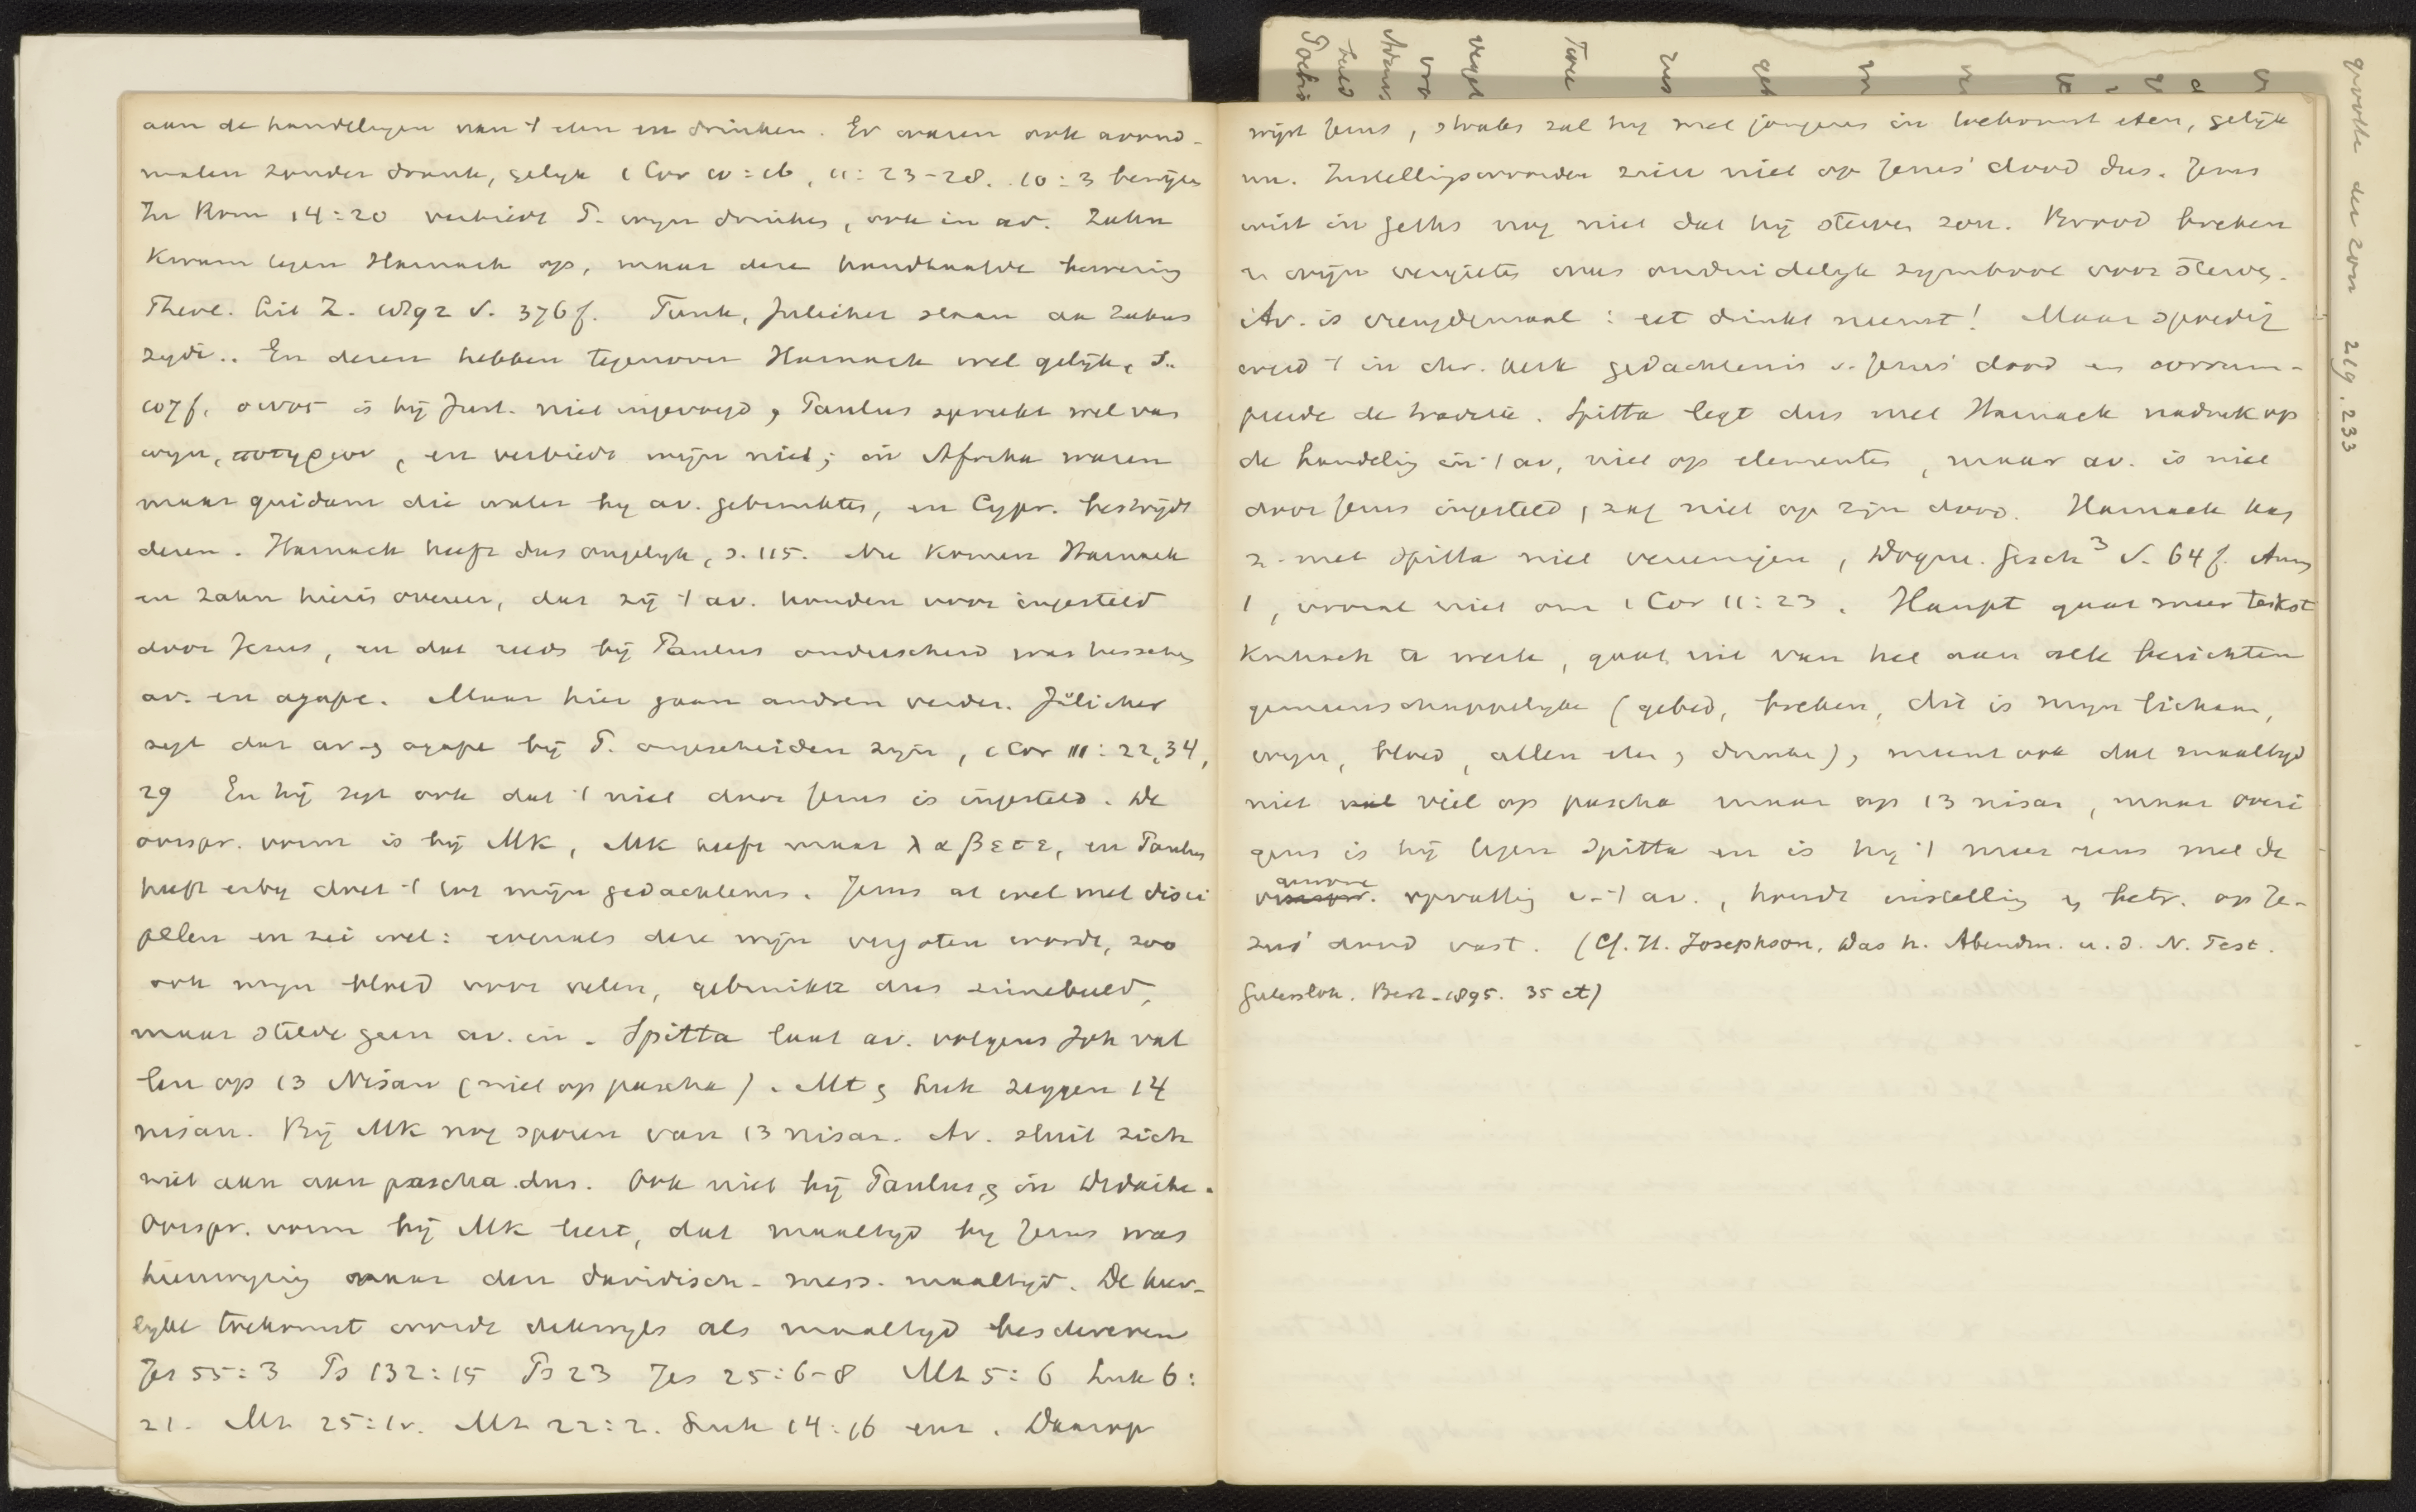 aan de handelingen van 't eten en drinken. Er waren ook avond-
malen zonder drank, gelijk 1 Cor 10:16, 11:23-28. 10:3 bewijzen
In Rom 14:20 verbiedt P. wijn drinken, ook in av. Zahn
kwam tegen Harnack op, maar deze handhaafde bewering
Theol. Lit Z. 1892 S. 376 f. Funk, Jülicher staan aan Zahns
zyde.. En dezen hebben tegenover Harnack wel gelijk, S.
107 f. οινος is bij Just. niet ingevoegd, Paulus spreekt wel van
wyn, ποτηριον, en verbiedt wijn niet; in Afrika waren
maar quidam die water by av. gebruikten, en Cypr. bestrijdt
dezen. Harnack heeft dus ongelyk, s. 115. Nu komen Harnack
en Zahn hierin overeen, dat zij 't av. houden voor ingesteld
door Jezus, en dat reeds bij Paulus onderscheid was tusschen
av. en agape. Maar hier gaan andren verder. Jülicher
zegt dat av. en agape bij P. ongescheiden zyn, 1 Cor 11:22,34,
29 En hij zegt ook dat 't niet door Jezus is ingesteld. De
oorspr. vorm is bij Mk, Mk heeft maar λαβετε, en Paulus
heeft erby doet 't tot mijn gedachtenis. Jezus at wel met disci
pelen en zei wel: evenals deze wijn vergoten wordt, zoo
ook myn bloed voor velen, gebruikte dus zinnebeeld,
maar stelde geen av. in. Spitta laat av. volgens Joh val
len op 13 Nisan (niet op pascha). Mt en Luk zeggen 14
nisan. Bij Mk nog sporen van 13 nisan. Av. sluit zich
niet aan aan pascha dus. Ook niet bij Paulus, en in Didache.
Oorspr. vorm bij Mk leert, dat maaltyd by Jezus was
heenwyzing naar den davidisch-mess. maaltyd. De heer-
lyke toekomst wordt dikwyls als maaltyd beschreven
Jes 55:3 Ps 132:15 Ps 23 Jes 25:6-8 Mt 5:6 Luk 6:
21. Mt 25:1v. Mt 22:2. Luk 14:16 enz. Daarop
wijst Jezus, straks zal hij met jongeren in toekomst eten, gelijk
nu. Instellingswoorden zien niet op Jezus' dood dus. Jezus
wist in Geths nog niet dat hij sterven zou. Brood breken
en wijn vergieten was onduidelyk symbool voor sterven.
Av. is vreugdemaal: eet drinkt neemt! Maar spoedig
werd 't in chr. kerk gedachtenis v. Jezus' dood en
de traditie. Spitta legt dus met Harnack nadruk op
de handeling in 't av, niet op elementen, maar av. is niet
door Jezus ingesteld, zag niet op zijn dood. Harnack kan
z. met Spitta niet vereenigen, Dogm. Gesch³ S. 64 f. Anm
1, vooral niet om 1 Cor 11:23. Haupt gaat meer tekst
kritisch te werk, gaat uit van het aan alle berichten
gemeenschappelyke (gebed, breken, dit is myn lichaam,
wyn, bloed, allen eten en drinken), meent ook dat maaltyd
niet viel op pascha maar op 13 nisan, maar overi
gens is hij tegen Spitta en is hij 't meer eens met de
gewone
opvatting v. 't av., houdt instelling en betr. op Je-
zus' dood vast. (Cf. H. Josephson, Das h. Abendm. u. d. N. Test.
Gütersloh. Bert. 1895. 35 ct)
grootte der zon 219. 233